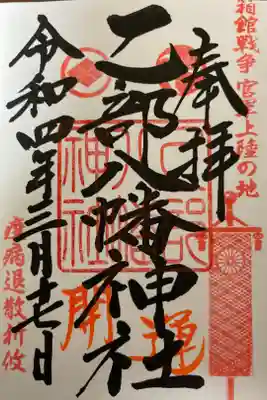 箱館戦争 官軍上陸の地
奉拝
乙部八幡神社
開運
令和四年三月十七日
疫病退散祈攸